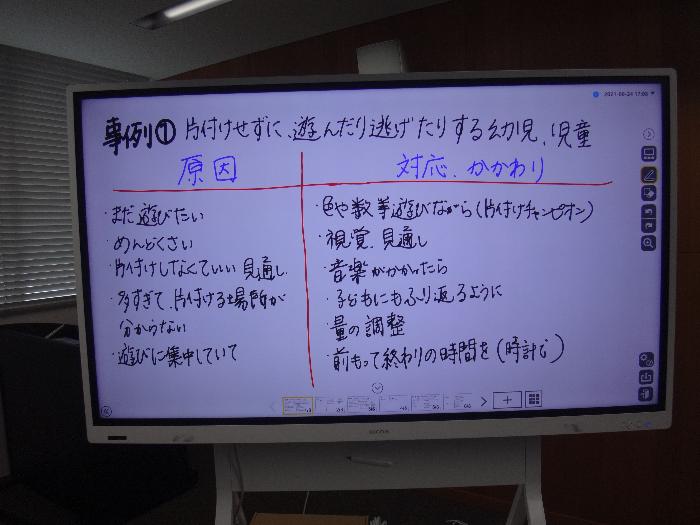 2021-06-24 17:03
事例① 片付けせずに、遊んだり逃げたりする幼児、児童
原因
対応、かかわり
・まだ遊びたい
・めんどくさい
・片付けしなくていい見通し
・多すぎて、片付ける場所が
分からない
・遊びに集中していて
・色や数挙遊びながら(片付けチャンピオン)
・視覚、見通し
・音楽がかかったら
・子どもにもふり返るように
・量の調整
・前もって終わりの時間を(時計で)
RICOH